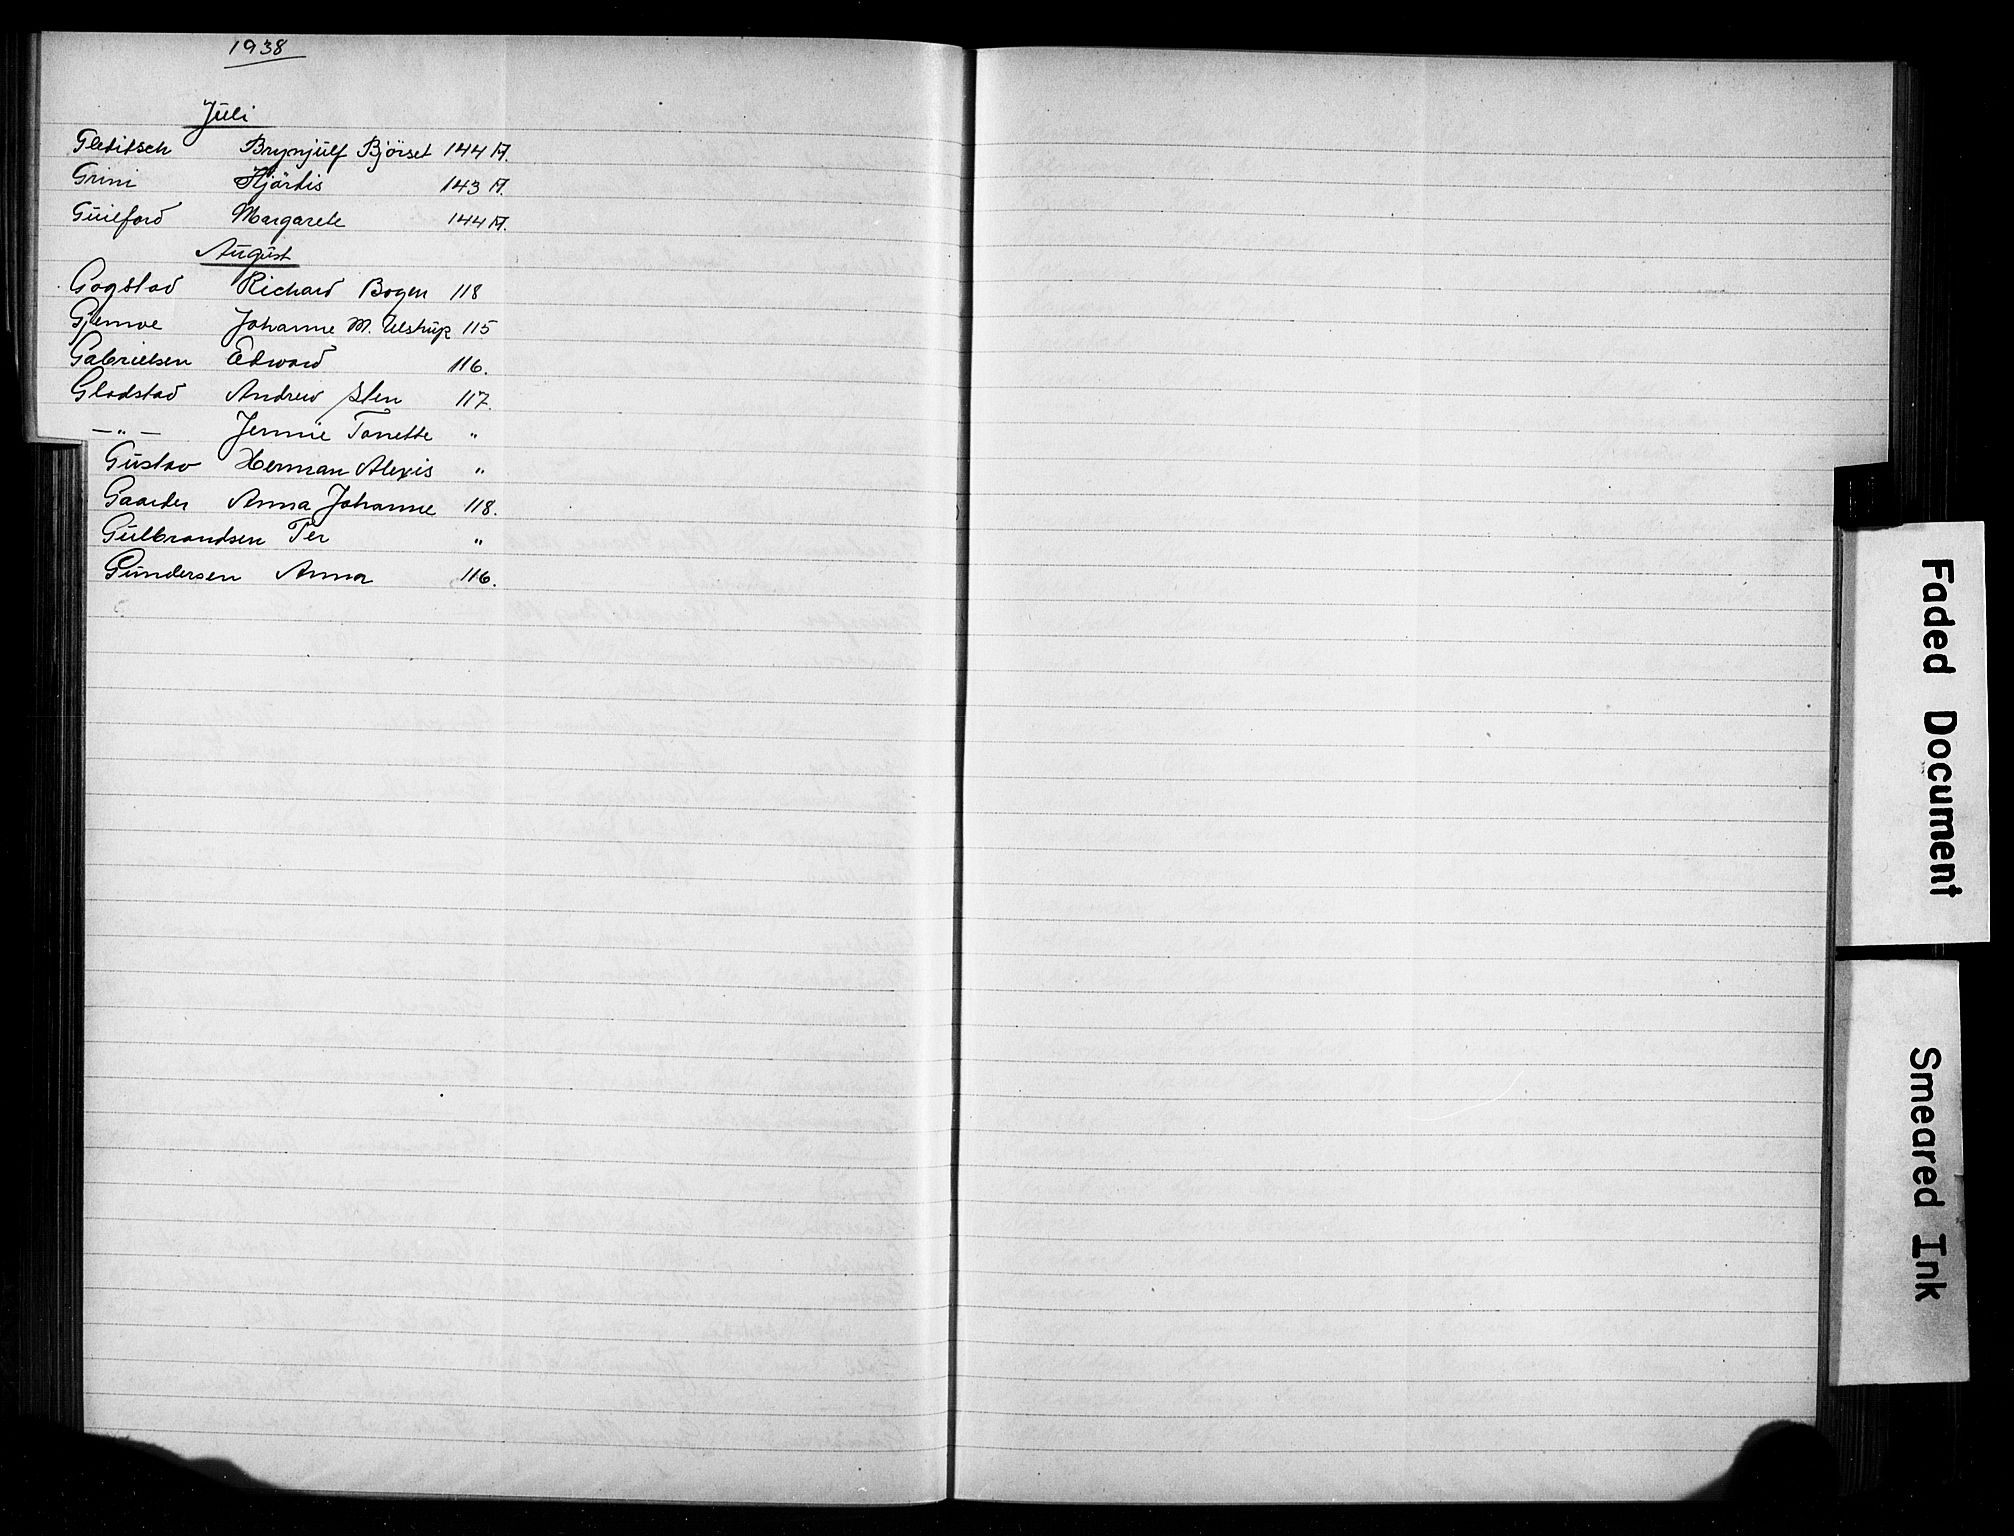 1938
Juli
Gleditsch Brynjulf Bjørset 144 A.
Grini Hjørdis 143 A.
Guilford Margarete 144 A.
August
Gogstad Richard Bogen 118
Gjemoe Johanne M. Ulstrup 115
Gabrielsen Edward 116.
Gladstad Andrew Sten 117.
— " — Jennie Tonette "
Gustav Herman Alexis "
Gaarder Anna Johanne 118.
Gulbrandsen Per "
Gundersen Anna 116.
Faded Document
Smeared Ink